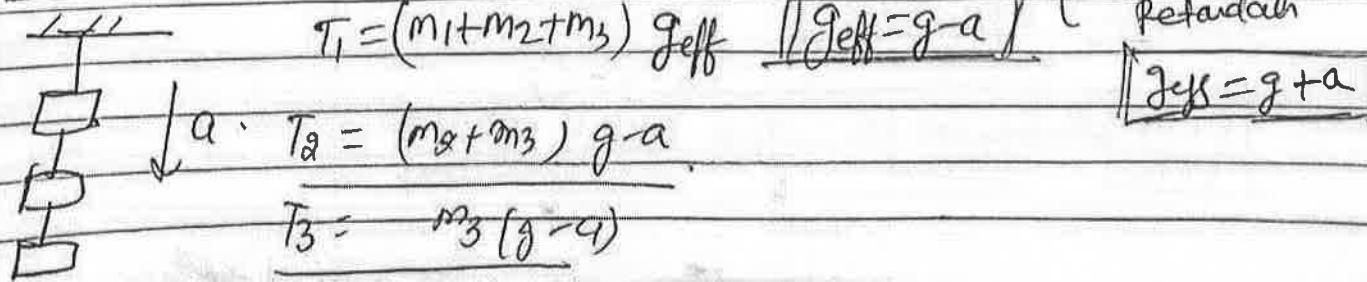 T₁ = (m1+m2+m3) geff || geff = g-a ) (
Retardation
|| geff = g+a
a. T2 = (m2+m3) g-a
T3 = m3(g-a)